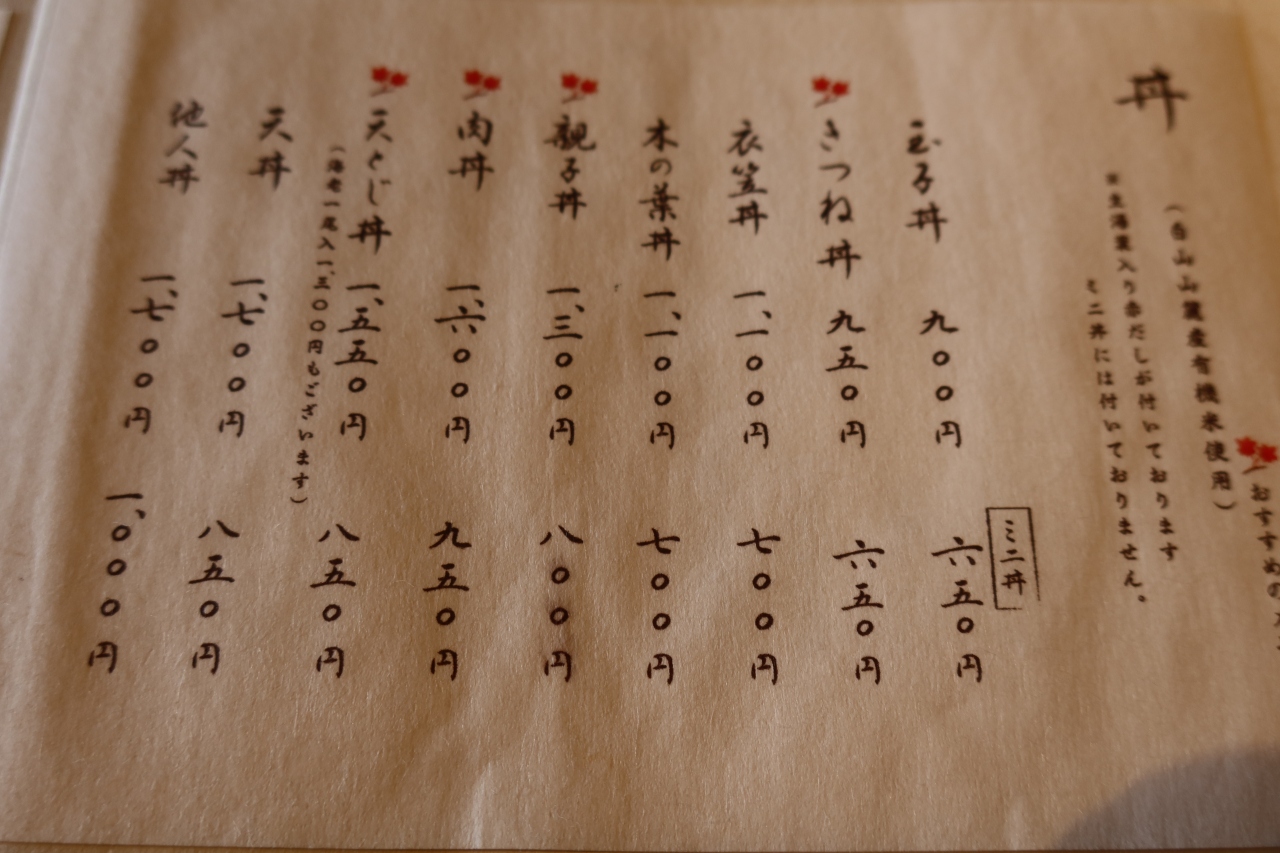 おすすめの
丼
(香山山麓産有機米使用)
※生海苔入り赤だしが付いております
ミニ丼には付いておりません。
ミニ丼
玉子丼 九〇〇円 六五〇円
きつね丼 九五〇円 六五〇円
衣笠丼 一、一〇〇円 七〇〇円
木の葉丼 一、一〇〇円 七〇〇円
親子丼 一、三〇〇円 八〇〇円
肉丼 一、六〇〇円 九五〇円
天とじ丼 一、五五〇円 八五〇円
(海老一尾入一、三〇〇円もございます)
天丼 一、七〇〇円 八五〇円
他人丼 一、七〇〇円 一、〇〇〇円